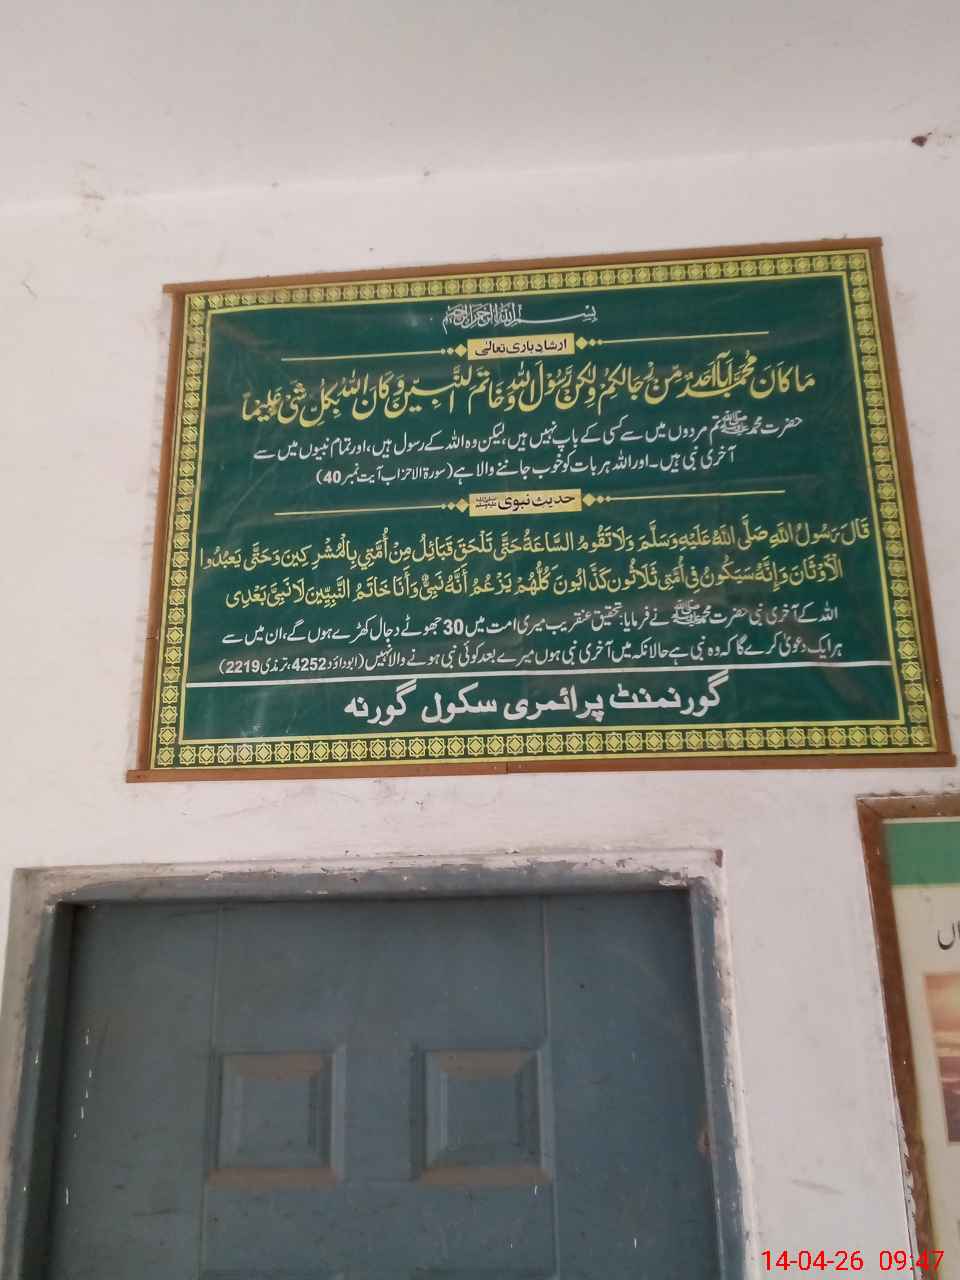 بسم الله الرحمن الرحيم
ارشاد باری تعالیٰ
مَا كَانَ مُحَمَّدٌ أَبَا أَحَدٍ مِّن رِّجَالِكُمْ وَلَٰكِن رَّسُولَ اللَّهِ وَخَاتَمَ النَّبِيِّينَ وَكَانَ اللَّهُ بِكُلِّ شَيْءٍ عَلِيمًا
حضرت محمد ﷺ تم مردوں میں سے کسی کے باپ نہیں ہیں، لیکن وہ اللہ کے رسول ہیں، اور تمام نبیوں میں سے
آخری نبی ہیں۔ اور اللہ ہر بات کو خوب جاننے والا ہے (سورۃ الاحزاب آیت نمبر 40)
حدیث نبوی ﷺ
قَالَ رَسُولُ اللهِ صَلَّى اللهُ عَلَيْهِ وَسَلَّمَ وَلَا تَقُومُ السَّاعَةُ حَتَّى تَلْحَقَ قَبَائِلُ مِنْ أُمَّتِي بِالْمُشْرِكِينَ وَحَتَّى يَعْبُدُوا
الْأَوْثَانَ وَإِنَّهُ سَيَكُونُ فِي أُمَّتِي ثَلَاثُونَ كَذَّابُونَ كُلُّهُمْ يَزْعُمُ أَنَّهُ نَبِيٌّ وَأَنَا خَاتَمُ النَّبِيِّينَ لَا نَبِيَّ بَعْدِي
اللہ کے آخری نبی حضرت محمد ﷺ نے فرمایا: تحقیق عنقریب میری امت میں 30 جھوٹے دجال کھڑے ہوں گے، ان میں سے
ہر ایک دعویٰ کرے گا کہ وہ نبی ہے حالانکہ میں آخری نبی ہوں میرے بعد کوئی نبی ہونے والا نہیں (ابوداؤد 4252، ترمذی 2219)
گورنمنٹ پرائمری سکول گورنہ
14-04-26 09:47